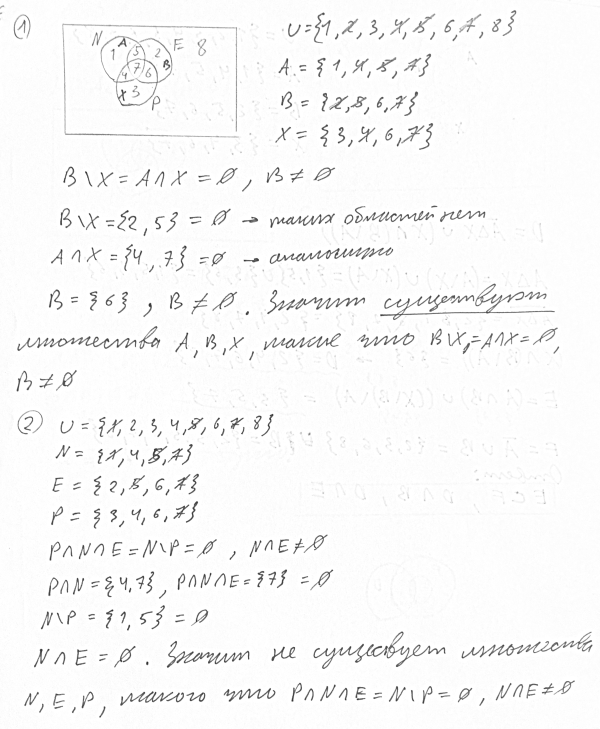 ①
N A E 8
1 5 2 B
4 7 6
X 3
P
U={1, 2, 3, 4, 5, 6, 7, 8}
A = {1, 4, 5, 7}
B = {2, 5, 6, 7}
X = {3, 4, 6, 7}
B \ X = A ∩ X = ∅, B ≠ ∅
B \ X = {2, 5} = ∅ → таких областей нет
A ∩ X = {4, 7} = ∅ → аналогично
B = {6}, B ≠ ∅. Значит существуют
множества A, B, X, такие что B \ X = A ∩ X = ∅,
B ≠ ∅
② U = {1, 2, 3, 4, 5, 6, 7, 8}
N = {1, 4, 5, 7}
E = {2, 5, 6, 7}
P = {3, 4, 6, 7}
P ∩ N ∩ E = N \ P = ∅, N ∩ E ≠ ∅
P ∩ N = {4, 7}, P ∩ N ∩ E = {7} = ∅
N \ P = {1, 5} = ∅
N ∩ E = ∅. Значит не существует множества
N, E, P, такого что P ∩ N ∩ E = N \ P = ∅, N ∩ E ≠ ∅